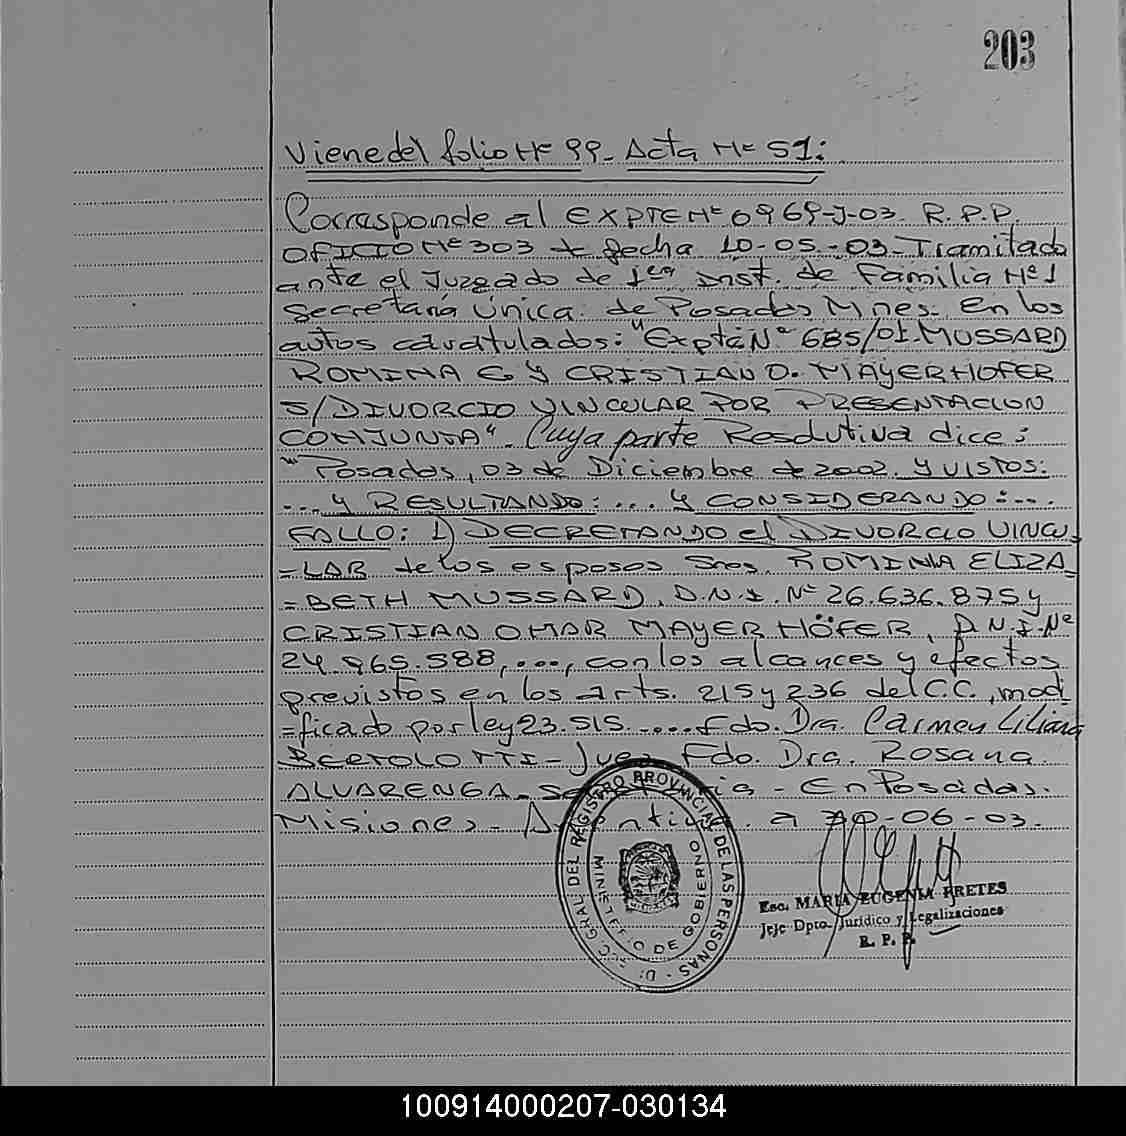 203
Viene del folio Nº 99 - Acta Nº 51:
Corresponde al EXPTE Nº 6969-J-03. R.P.P.
OFICIO Nº 303 + fecha 10-05-03- Tramitado
ante el Juzgado de 1era Inst. de Familia Nº 1
Secretaria Única. de Posadas Mnes. En los
autos caratulados: "Expte Nº 685/01. MUSSARD
ROMINA E Y CRISTIAN O. MAYERHOFER
S/DIVORCIO VINCULAR POR PRESENTACION
CONJUNTA". Cuya parte Resolutiva dice:
"Posadas, 03 de Diciembre de 2002. Y VISTOS:
... Y RESULTANDO: ... Y CONSIDERANDO: ...
FALLO: 1) DECRETANDO el DIVORCIO VINCU-
=LAR de los esposos Sres. ROMINA ELIZA
=BETH MUSSARD, D.N.I. Nº 26.636.875 y
CRISTIAN OMAR MAYER HÖFER, D.N.I. Nº
24.965.588, ..., con los alcances y efectos
previstos en los arts. 215 y 236 del C.C., modi
=ficado por ley 23.515. .... Fdo. Dra. Carmen Liliana
BERTOLOTTI - Juez Fdo. Dra. Rosana
ALVARENGA - - En Posadas.
Misiones - Argentina. a -06-03.
DIREC. GRAL DEL REGISTRO PROVINCIAL DE LAS PERSONAS
MINISTERIO DE GOBIERNO
Esc. MARIA EUGENIA PRETES
Jefe Dpto. Jurídico y Legalizaciones
R. P. P.
100914000207-030134